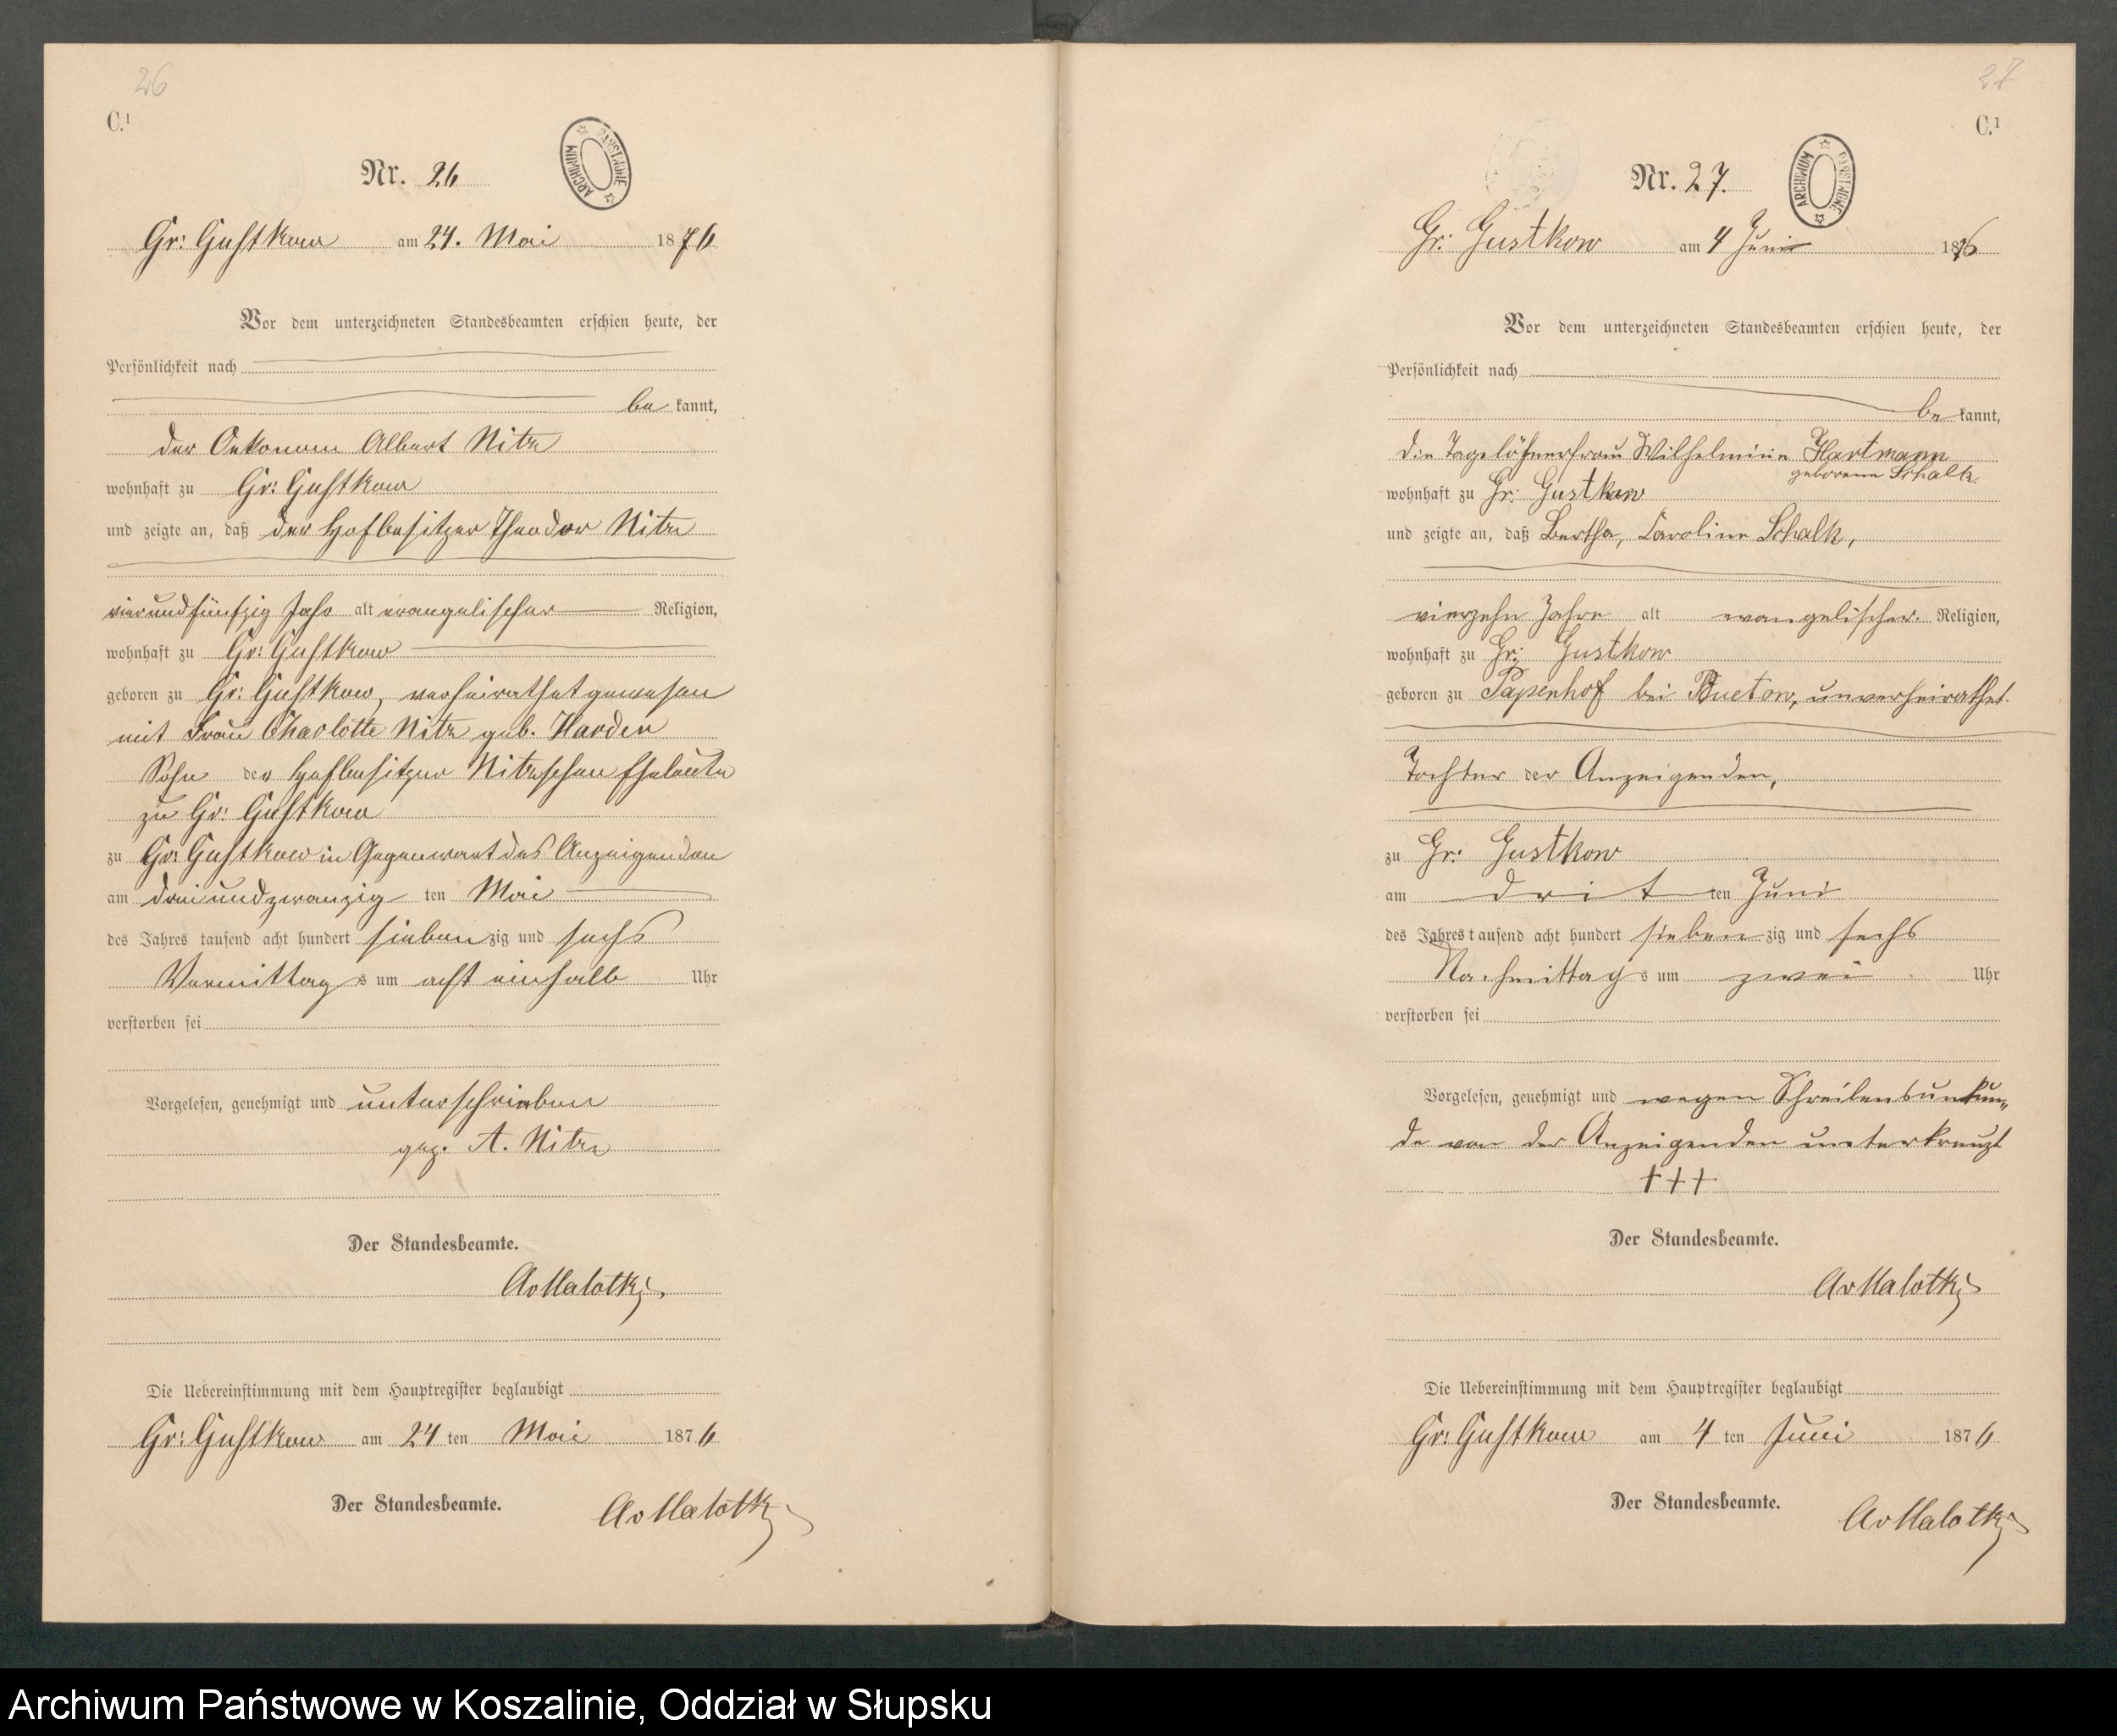 26
C.¹
Nr. 26
ARCHIWUM PAŃSTWOWE
Gr: Gustkow am 24. Mai 1876
Vor dem unterzeichneten Standesbeamten erschien heute, der
Persönlichkeit nach
be kannt,
der Oekonom Albert Nitze
wohnhaft zu Gr: Gustkow
und zeigte an, daß der Hofbesitzer Theodor Nitze
vierundfünfzig Jahr alt evangelischer Religion,
wohnhaft zu Gr: Gustkow
geboren zu Gr: Gustkow, verheirathet gewesen
mit Frau Charlotte Nitze geb. Harder
Sohn der Hofbesitzer Nitzeschen Eheleute
zu Gr: Gustkow
zu Gr: Gustkow in Gegenwart des Anzeigenden
am dreiundzwanzig ten Mai
des Jahres tausend acht hundert sieben zig und sechs
Vormittag s um acht einhalb Uhr
verstorben sei
Vorgelesen, genehmigt und unterschrieben
gez. A. Nitze
Der Standesbeamte.
AvMalotki
Die Uebereinstimmung mit dem Hauptregister beglaubigt
Gr: Gustkow am 24 ten Mai 1876
Der Standesbeamte.
AvMalotki
27
C.¹
Nr. 27.
ARCHIWUM PAŃSTWOWE
Gr: Gustkow am 4 Juni 1876
Vor dem unterzeichneten Standesbeamten erschien heute, der
Persönlichkeit nach
be kannt,
die Tagelöhnerfrau Wilhelmine Hartmann
geborene Schalk
wohnhaft zu Gr: Gustkow
und zeigte an, daß Bertha, Caroline Schalk,
vierzehn Jahre alt evangelischer Religion,
wohnhaft zu Gr: Gustkow
geboren zu Papenhof bei Buetow, unverheirathet.
Tochter der Anzeigenden,
zu Gr: Gustkow
am drit ten Juni
des Jahres tausend acht hundert sieben zig und sechs
Nachmittag s um zwei Uhr
verstorben sei
Vorgelesen, genehmigt und wegen Schreibensunkun„
de von der Anzeigenden unterkreuzt
+++
Der Standesbeamte.
AvMalotki
Die Uebereinstimmung mit dem Hauptregister beglaubigt
Gr: Gustkow am 4 ten Juni 1876
Der Standesbeamte.
AvMalotki
Archiwum Państwowe w Koszalinie, Oddział w Słupsku